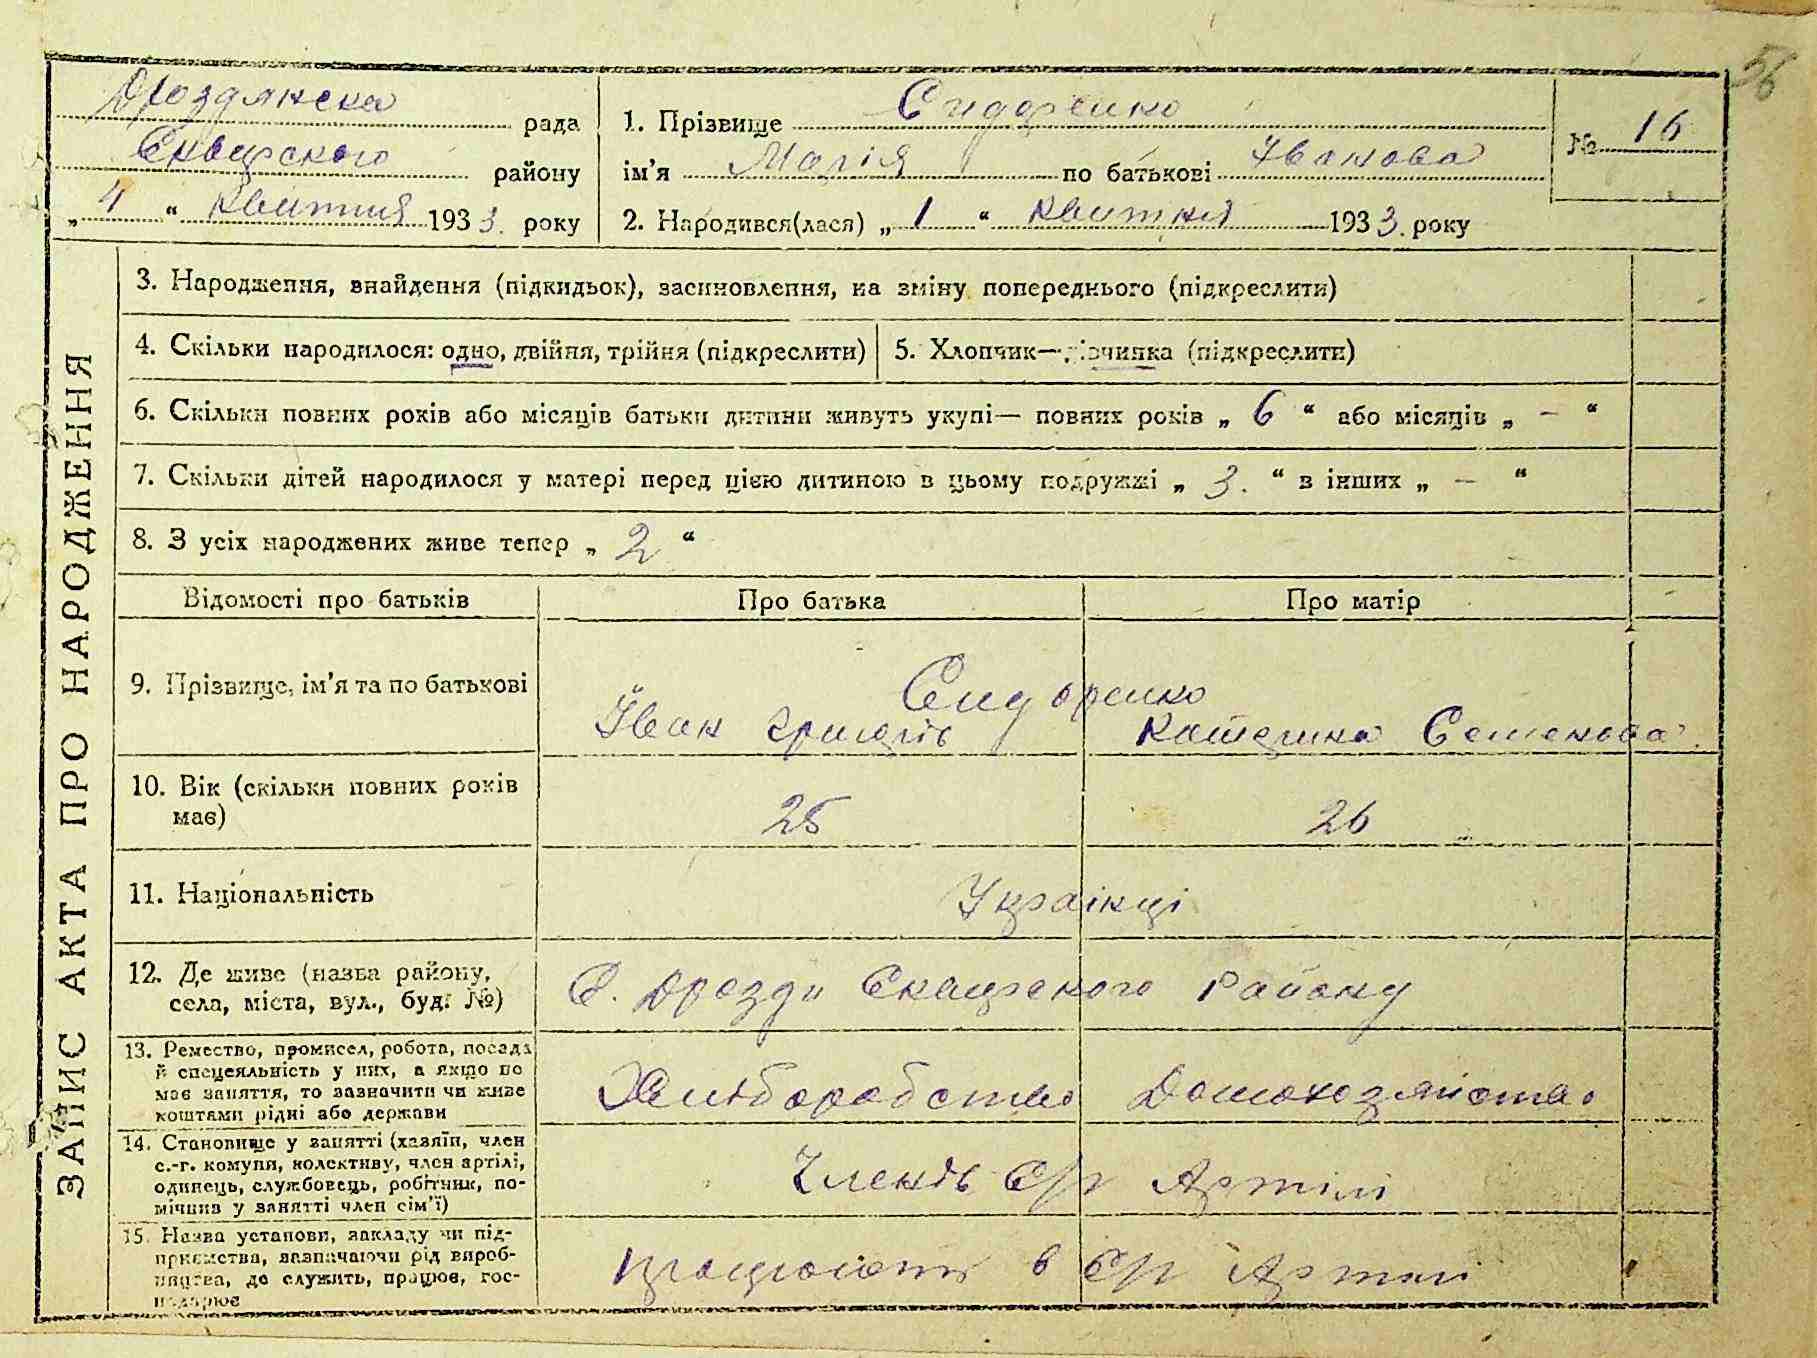 56
Дроздянска рада
Сквирского району
„ 4 “ Квитня 1933. року
1. Прізвище Сидоренко
ім’я Марія по батькові Іванова
2. Народився(лася) „ 1 “ Квитня 1933. року
№ 16
ЗАПИС АКТА ПРО НАРОДЖЕННЯ
3. Народження, знайдення (підкидьок), засиновлення, на зміну попереднього (підкреслити)
4. Скільки народилося: одно, двійня, трійня (підкреслити)
5. Хлопчик—дівчинка (підкреслити)
6. Скільки повних років або місяців батьки дитини живуть укупі— повних років „ 6 “ або місяців „ - “
7. Скільки дітей народилося у матері перед цією дитиною в цьому подружжі „ 3. “ в інших „ - “
8. З усіх народжених живе тепер „ 2 “
Відомості про батьків
Про батька
Про матір
9. Прізвище, ім’я та по батькові
Сидоренко
Іван Григорів
Катерина Семенова
10. Вік (скільки повних років
має)
25
26
11. Національність
Українці
12. Де живе (назва району,
села, міста, вул., буд. №)
С. Дрозди Сквирского Району
13. Ремество, промисел, робота, посада
й спецеяльність у них, а якщо не
має заняття, то зазначити чи живе
коштами рідні або держави
Хліборобство
Домохозяйство
14. Становище у занятті (хазяїн, член
с.-г. комуни, колективу, член артілі,
одинець, службовець, робітник, по-
мічник у занятті член сім’ї)
Членів С/г Артілі
15. Назва установи, закладу чи під-
приємства, зазначаючи рід вироб-
ництва, де служить, працює, гос-
подарює
працюють в С/г Артілі